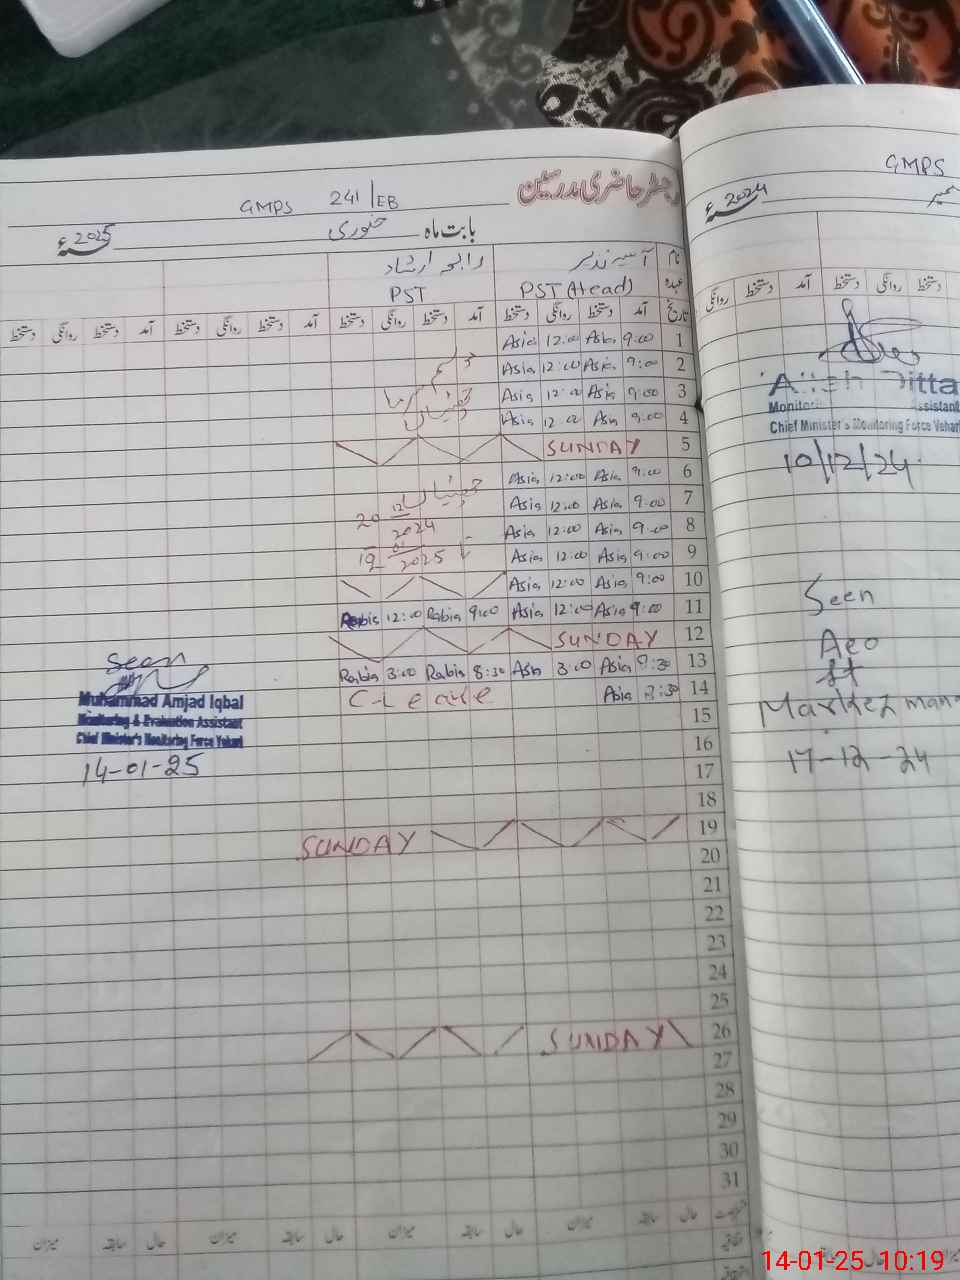 رجسٹر حاضری مدرسین
GMPS 241/EB
بابت ماہ جنوری 2025ء
نام آسیہ نذیر رابعہ ارشاد
عہدہ PST (Head) PST
تاریخ آمد دستخط روانگی دستخط آمد دستخط روانگی دستخط آمد دستخط روانگی دستخط آمد دستخط روانگی دستخط
1 9:00 Asia 12:00 Asia
2 9:00 Asia 12:00 Asia
3 9:00 Asia 12:00 Asia
4 9:00 Asia 12:00 Asia
موسم سرما
چھٹیاں
5 SUNDAY
6 9:00 Asia 12:00 Asia
7 9:00 Asia 12:00 Asia
8 9:00 Asia 12:00 Asia
9 9:00 Asia 12:00 Asia
چھٹیاں
20 12 2024
01 2025
10 9:00 Asia 12:00 Asia
11 9:00 Asia 12:00 Asia 9:00 Rabia 12:00 Rabia
12 SUNDAY
13 Asia 3:00 Asia 8:30 Rabia 3:00 Rabia
14 Asia C-Leave
15
16
17
18
19 SUNDAY
20
21
22
23
24
25
26 SUNDAY
27
28
29
30
31
حال سابقہ میزان حال سابقہ میزان حال سابقہ میزان حال سابقہ میزان
Seen
Muhammad Amjad Iqbal
Monitoring & Evaluation Assistant
Chief Minister's Monitoring Force Vehari
14-01-25
GMPS
2024ء
دستخط روانگی دستخط آمد دستخط روانگی
Ditta
Assistant
Chief Minister's Monitoring Force Vehari
10/12/24
Seen
Aeo
Markez
17-12-24
14-01-25 10:19